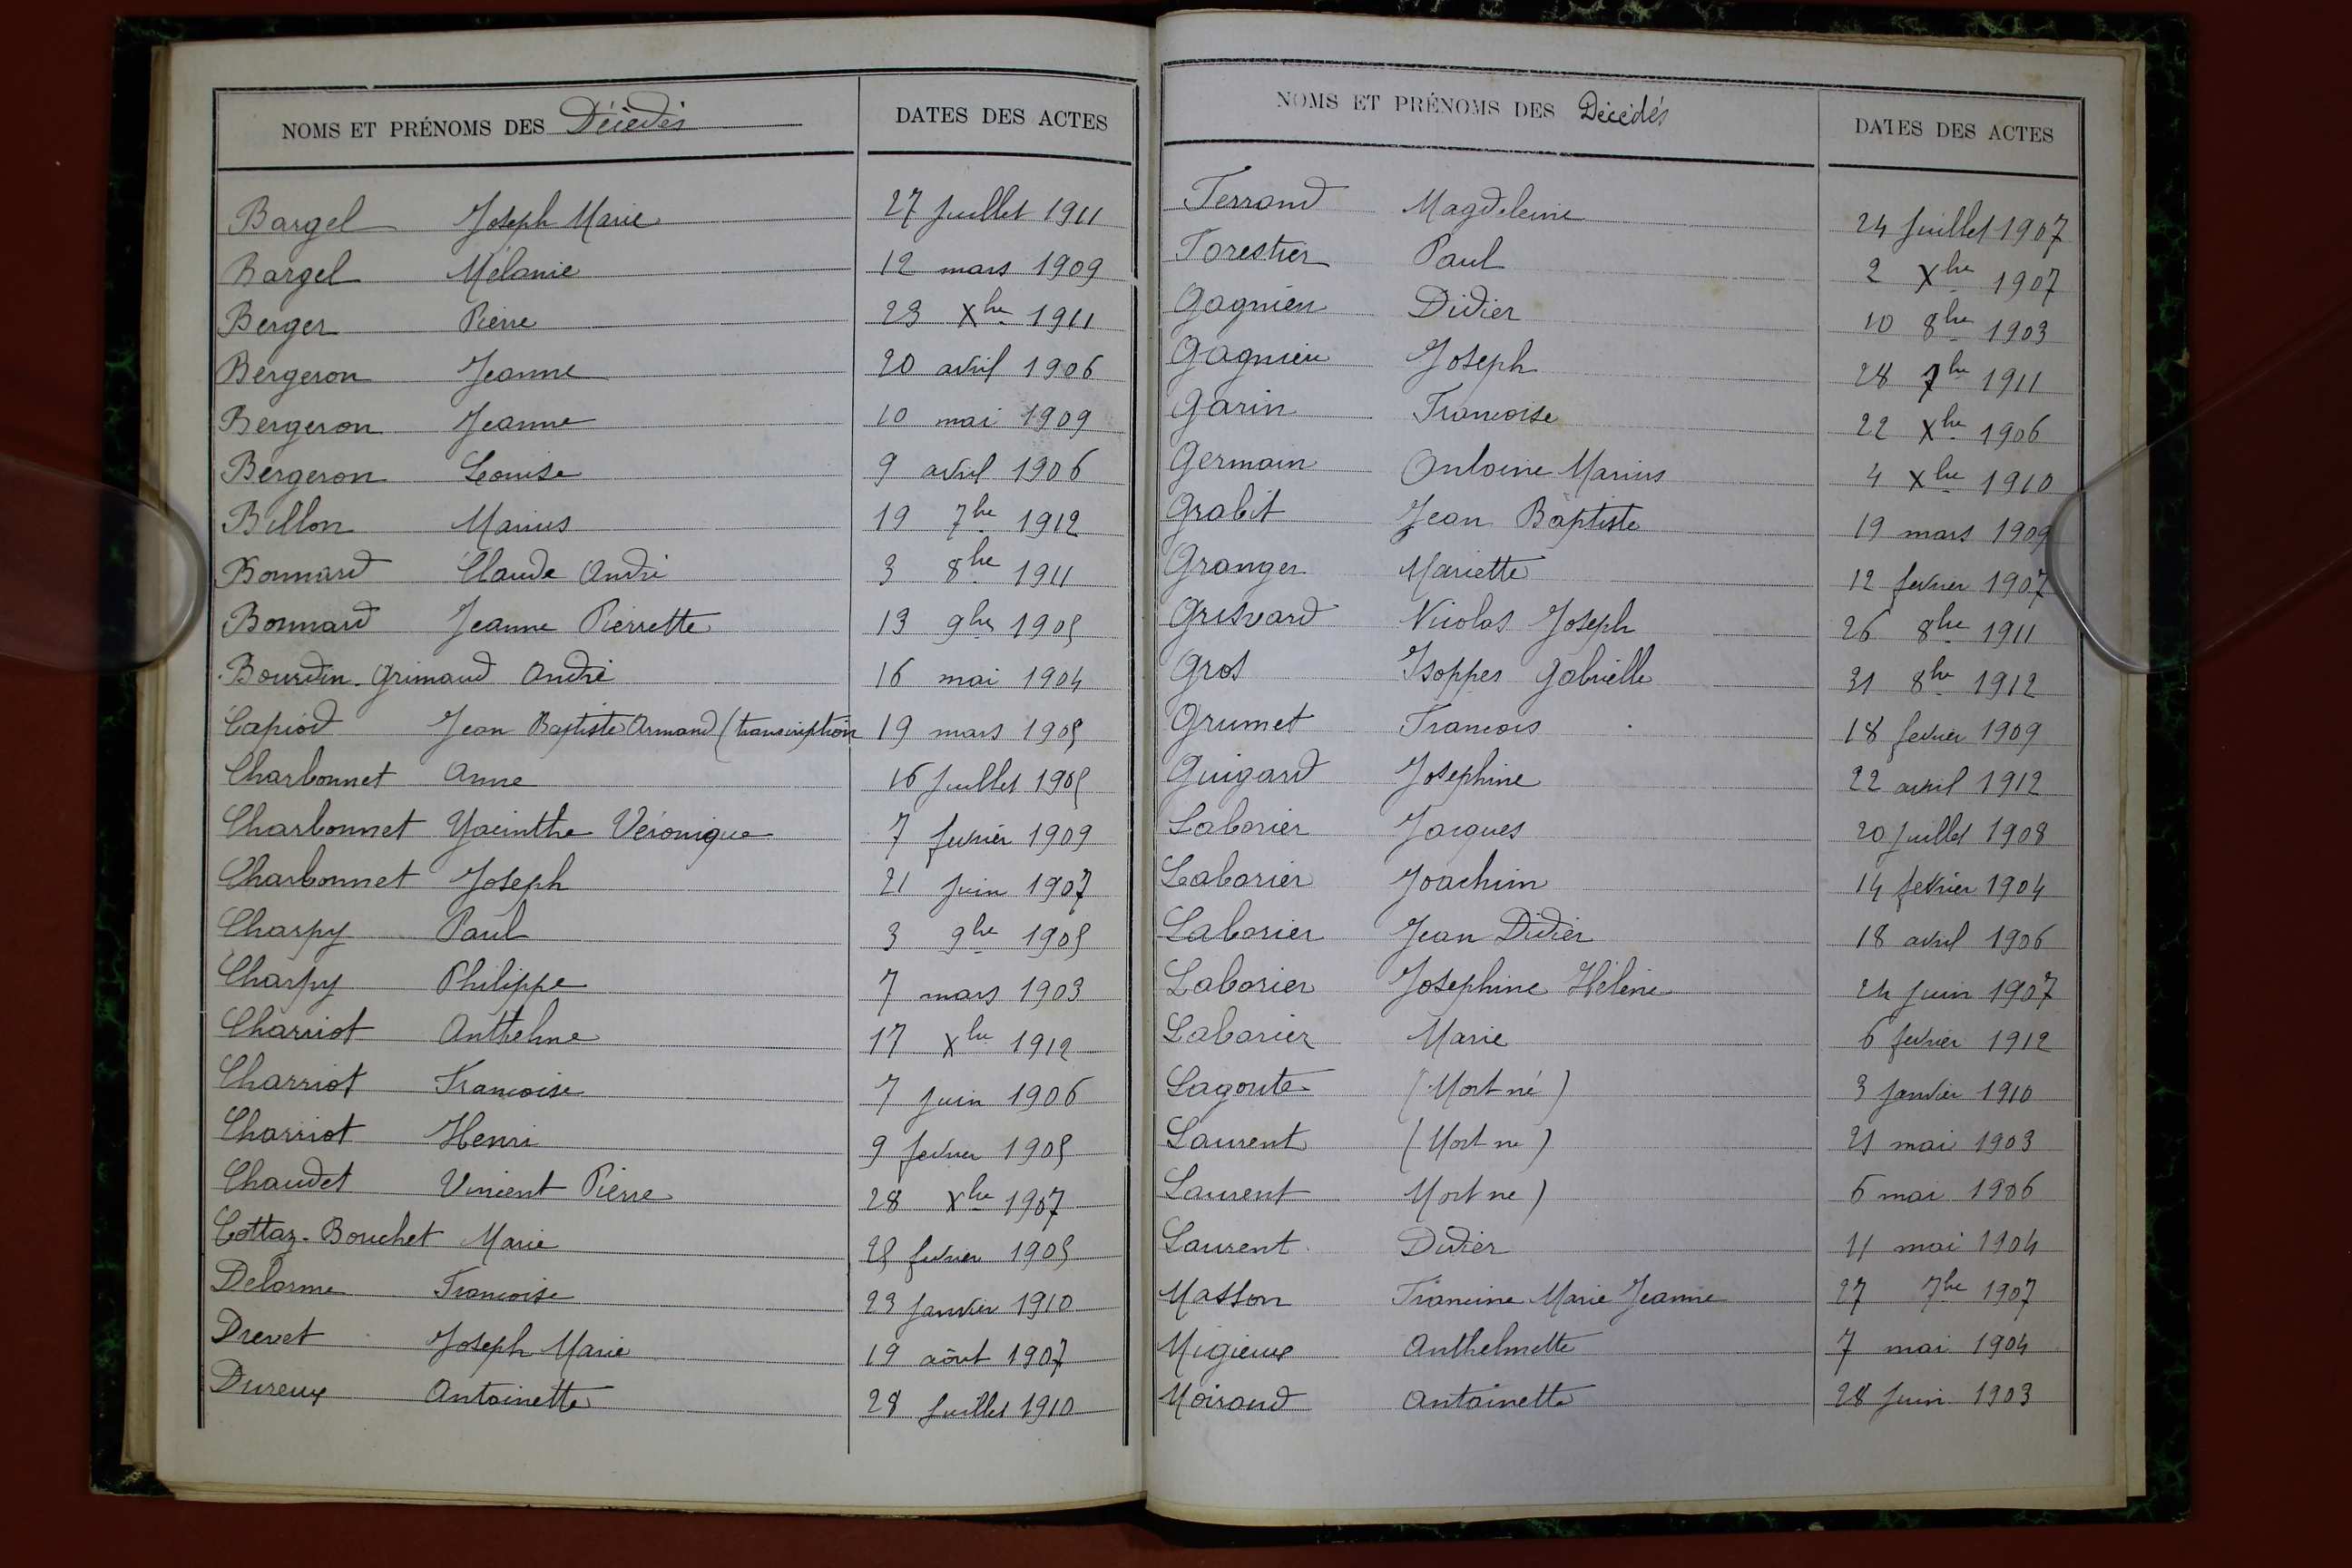 NOMS ET PRÉNOMS DES Décédés DATES DES ACTES
Bargel Joseph Marie 27 Juillet 1911
Bargel Mélanie 12 mars 1909
Berger Pierre 23 Xbre 1911
Bergeron Jeanne 20 avril 1906
Bergeron Jeanne 10 mai 1909
Bergeron Louise 9 avril 1906
Billon Marius 19 7bre 1912
Bonnard Claude André 3 8bre 1911
Bonnard Jeanne Pierrette 13 9bre 1905
Bourdin-Grimaud André 16 mai 1904
Capiod Jean Baptiste Armand (transcription 19 mars 1905
Charbonnet Anne 16 Juillet 1905
Charbonnet Yacinthe Véronique 7 fevrier 1909
Charbonnet Joseph 21 Juin 1907
Charpy Paul 3 9bre 1905
Charpy Philippe 7 mars 1903
Charriot Anthelme 17 Xbre 1912
Charriot Francoise 7 Juin 1906
Charriot Henri 9 fevrier 1905
Chaudet Vincent Pierre 28 Xbre 1907
Cottaz-Bouchet Marie 25 fevrier 1905
Delorme Francoise 23 Janvier 1910
Drevet Joseph Marie 19 août 1907
Dureux Antoinette 28 Juillet 1910
NOMS ET PRÉNOMS DES Décédés DATES DES ACTES
Ferrand Magdeleine 24 Juillet 1907
Forestier Paul 2 Xbre 1907
Gagnieu Didier 10 8bre 1903
Gagnieu Joseph 28 7bre 1911
Garin Francoise 22 Xbre 1906
Germain Antoine Marius 4 Xbre 1910
Grabit Jean Baptiste 19 mars 1909
Granger Mariette 12 fevrier 1907
Grisvard Nicolas Joseph 26 8bre 1911
Gros Isoppes Gabrielle 31 8bre 1912
Grumet Francois 18 fevrier 1909
Guigard Josephine 22 avril 1912
Laborier Jacques 20 Juillet 1908
Laborier Joachim 14 fevrier 1904
Laborier Jean Didier 18 avril 1906
Laborier Josephine Hélène 24 Juin 1907
Laborier Marie 6 fevrier 1912
Lagoute (Mort né) 3 Janvier 1910
Laurent (Mort ne) 21 mai 1903
Laurent Mort ne) 6 mai 1906
Laurent Didier 11 mai 1904
Masson Francine Marie Jeanne 27 7bre 1907
Migieux Anthelmette 7 mai 1904
Moiroud Antoinette 28 Juin 1903